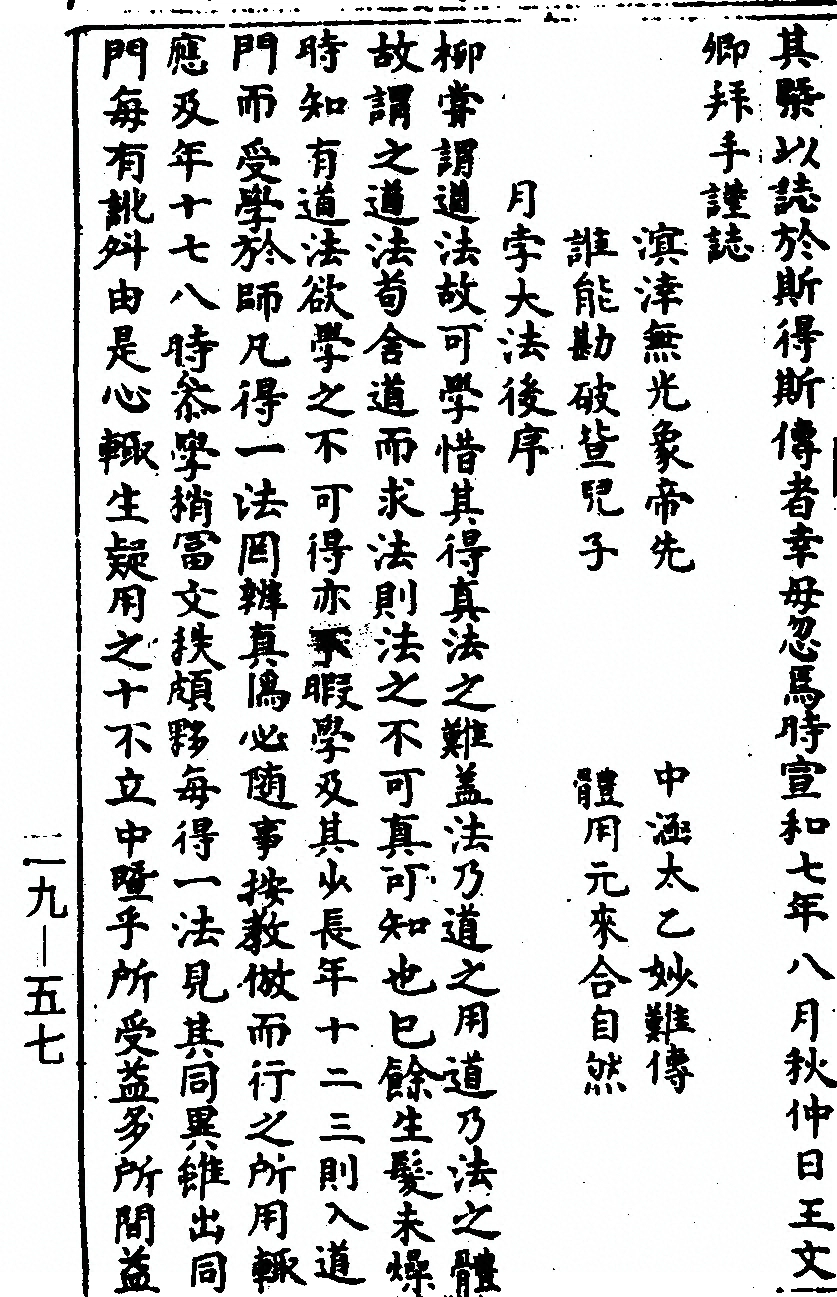 其槩以誌於斯得斯傳者幸毋忽焉時宣和七年八月秋仲日王文
卿拜手謹誌
溟涬無光象帝先　中涵太乙妙難傳
誰能勘破㫖兒子　體用元來合自然
月孛大法後序
柳嘗謂道法故可學惜其得真法之難蓋法乃道之用道乃法之體
故謂之道法苟舍道而求法則法之不可真可知也已餘生髮未燥
時知有道法欲學之不可得亦不暇學及其少長年十二三則入道
門而受學於師凡得一法罔辨真僞必随事按教倣而行之所用輒
應及年十七八時叅學稍冨文拱頗夥每得一法見其同異雖出同
門每有訛舛由是心輒生疑用之十不立中曁乎所受益多所聞益
一九—五七